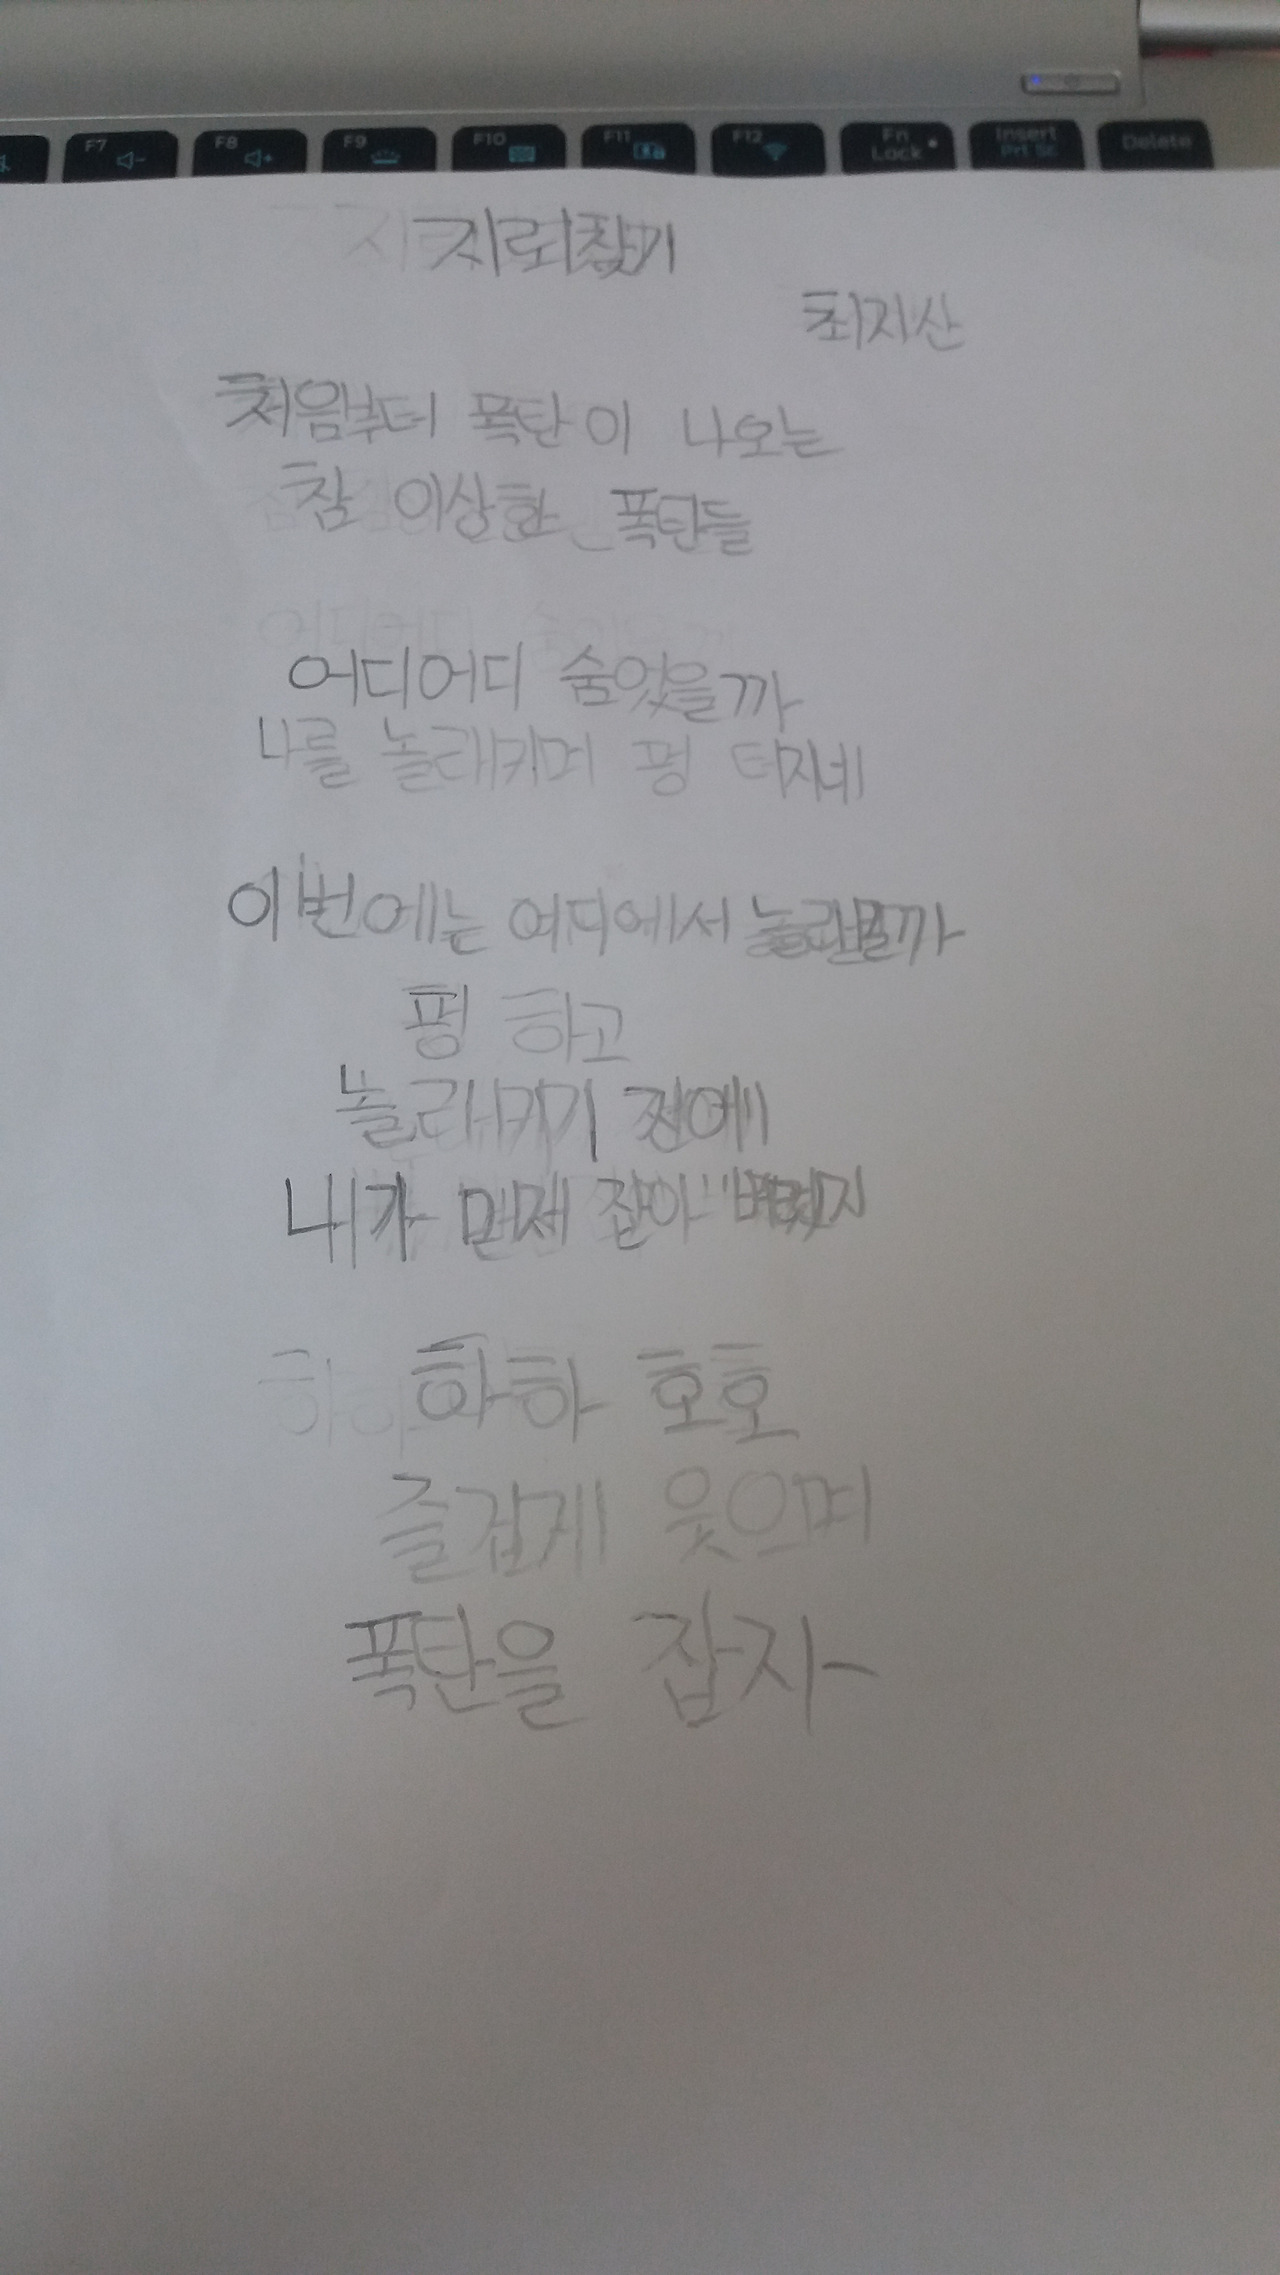 F7 F8 F9 F10 F11 F12 Fn Lock Insert Prt Sc Delete
지뢰찾기
최지산
처음부터 폭탄이 나오는
참 이상한 폭탄들
어디어디 숨었을까
나를 놀래키며 펑 터지네
이번에는 어디에서
펑 하고
놀래키기 전에
내가 먼저 잡아버렸지
하하 호호
즐겁게 웃으며
폭탄을 잡자